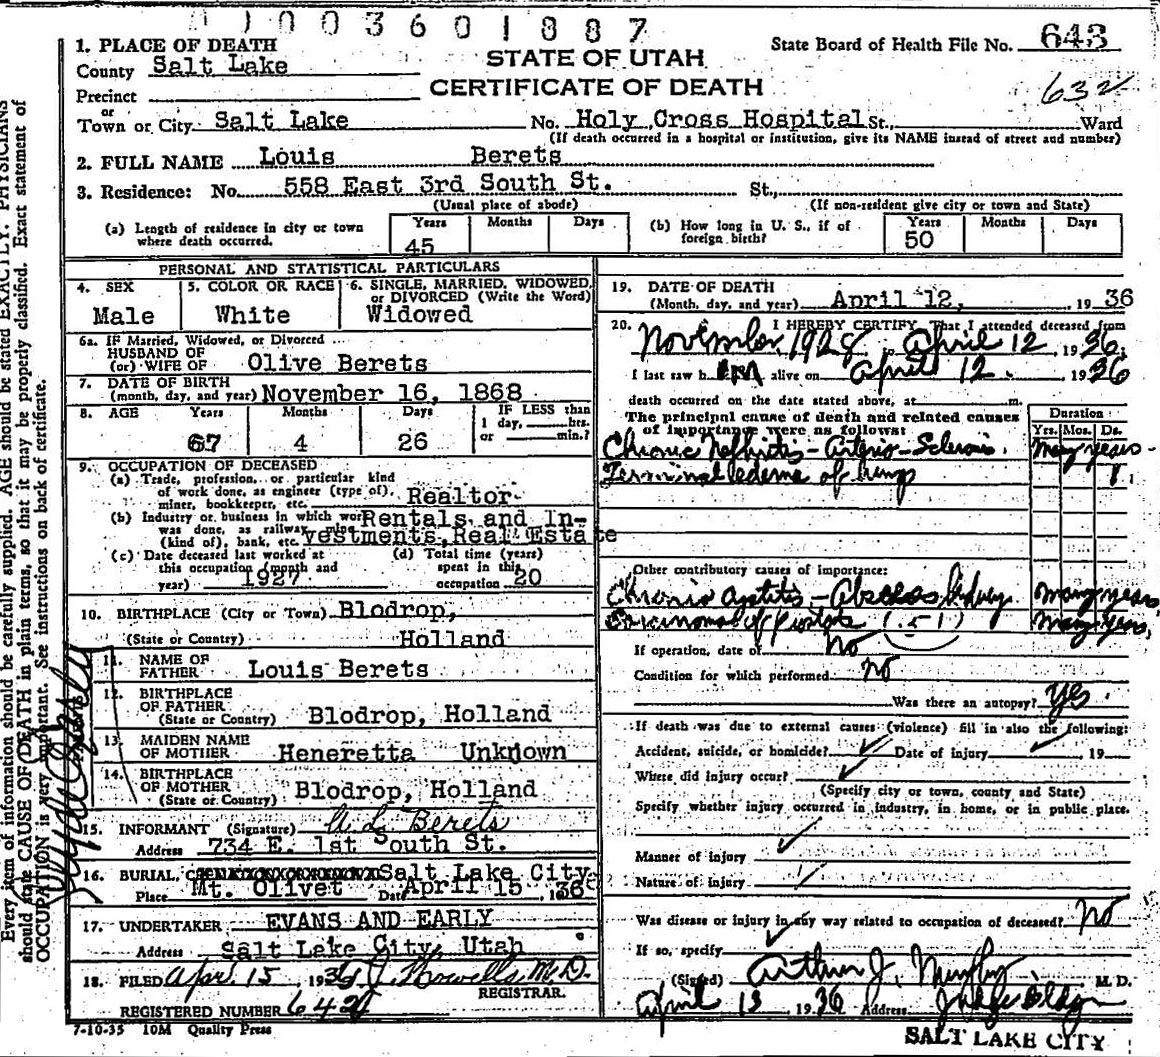 01003601887
State Board of Health File No. 643
632
STATE OF UTAH
CERTIFICATE OF DEATH
1. PLACE OF DEATH
County Salt Lake
Precinct
or
Town or City Salt Lake No. Holy Cross Hospital St., Ward
(If death occurred in a hospital or institution, give its NAME instead of street and number)
2. FULL NAME Louis Berets
3. Residence: No. 558 East 3rd South St. St.,
(Usual place of abode) (If non-resident give city or town and State)
(a) Length of residence in city or town where death occurred. Years 45 Months Days
(b) How long in U. S., if of foreign birth? Years 50 Months Days
PERSONAL AND STATISTICAL PARTICULARS
4. SEX Male
5. COLOR OR RACE White
6. SINGLE, MARRIED, WIDOWED, or DIVORCED (Write the Word) Widowed
6a. IF Married, Widowed, or Divorced
HUSBAND OF
(or) WIFE OF Olive Berets
7. DATE OF BIRTH
(month, day, and year) November 16, 1868
8. AGE Years 67 Months 4 Days 26 IF LESS than 1 day, hrs. or min.?
9. OCCUPATION OF DECEASED
(a) Trade, profession, or particular kind of work done, as engineer (type of), miner, bookkeeper, etc. Realtor
(b) Industry or business in which work was done, as railway, mine (kind of), bank, etc. Rentals and In-
vestments, Real Estate
(c) Date deceased last worked at this occupation (month and year) 1927
(d) Total time (years) spent in this occupation 20
10. BIRTHPLACE (City or Town) Blodrop,
(State or Country) Holland
11. NAME OF FATHER Louis Berets
12. BIRTHPLACE OF FATHER
(State or Country) Blodrop, Holland
13. MAIDEN NAME OF MOTHER Heneretta Unknown
14. BIRTHPLACE OF MOTHER
(State or Country) Blodrop, Holland
15. INFORMANT (Signature) A L Berets
Address 734 E. 1st South St.
16. BURIAL, Salt Lake City
Place Mt. Olivet Date April 15, 1936
17. UNDERTAKER EVANS AND EARLY
Address Salt Lake City, Utah
18. FILED Apr. 15, 1936 J. Howells M.D.
REGISTRAR.
REGISTERED NUMBER 642
7-10-35 10M Quality Press
19. DATE OF DEATH
(Month, day, and year) April 12, 1936
20. I HEREBY CERTIFY, That I attended deceased from
November 1928, April 12 1936.
I last saw h im alive on April 12 1936
death occurred on the date stated above, at m.
The principal cause of death and related causes of importance were as follows:
Duration
Yrs. Mos. Ds.
Chronic Nephritis - Arterio-Sclerosis. Many years
Terminal edema of lungs 1
Other contributory causes of importance:
Chronic Cystitis - Abscess kidney many years
Carcinoma of prostate (51) many yrs.
If operation, date of No
Condition for which performed no
Was there an autopsy? Yes.
If death was due to external causes (violence) fill in also the following:
Accident, suicide, or homicide? Date of injury 19
Where did injury occur?
(Specify city or town, county and State)
Specify whether injury occurred in industry, in home, or in public place.
Manner of injury
Nature of injury
Was disease or injury in any way related to occupation of deceased? No
If so, specify
(Signed) Arthur J. Murphy M. D.
April 13 1936 Address Judge Bldg
SALT LAKE CITY
Every item of information should be carefully supplied. AGE should be stated EXACTLY. PHYSICIANS
should state CAUSE OF DEATH in plain terms, so that it may be properly classified. Exact statement of
OCCUPATION is very important. See instructions on back of certificate.